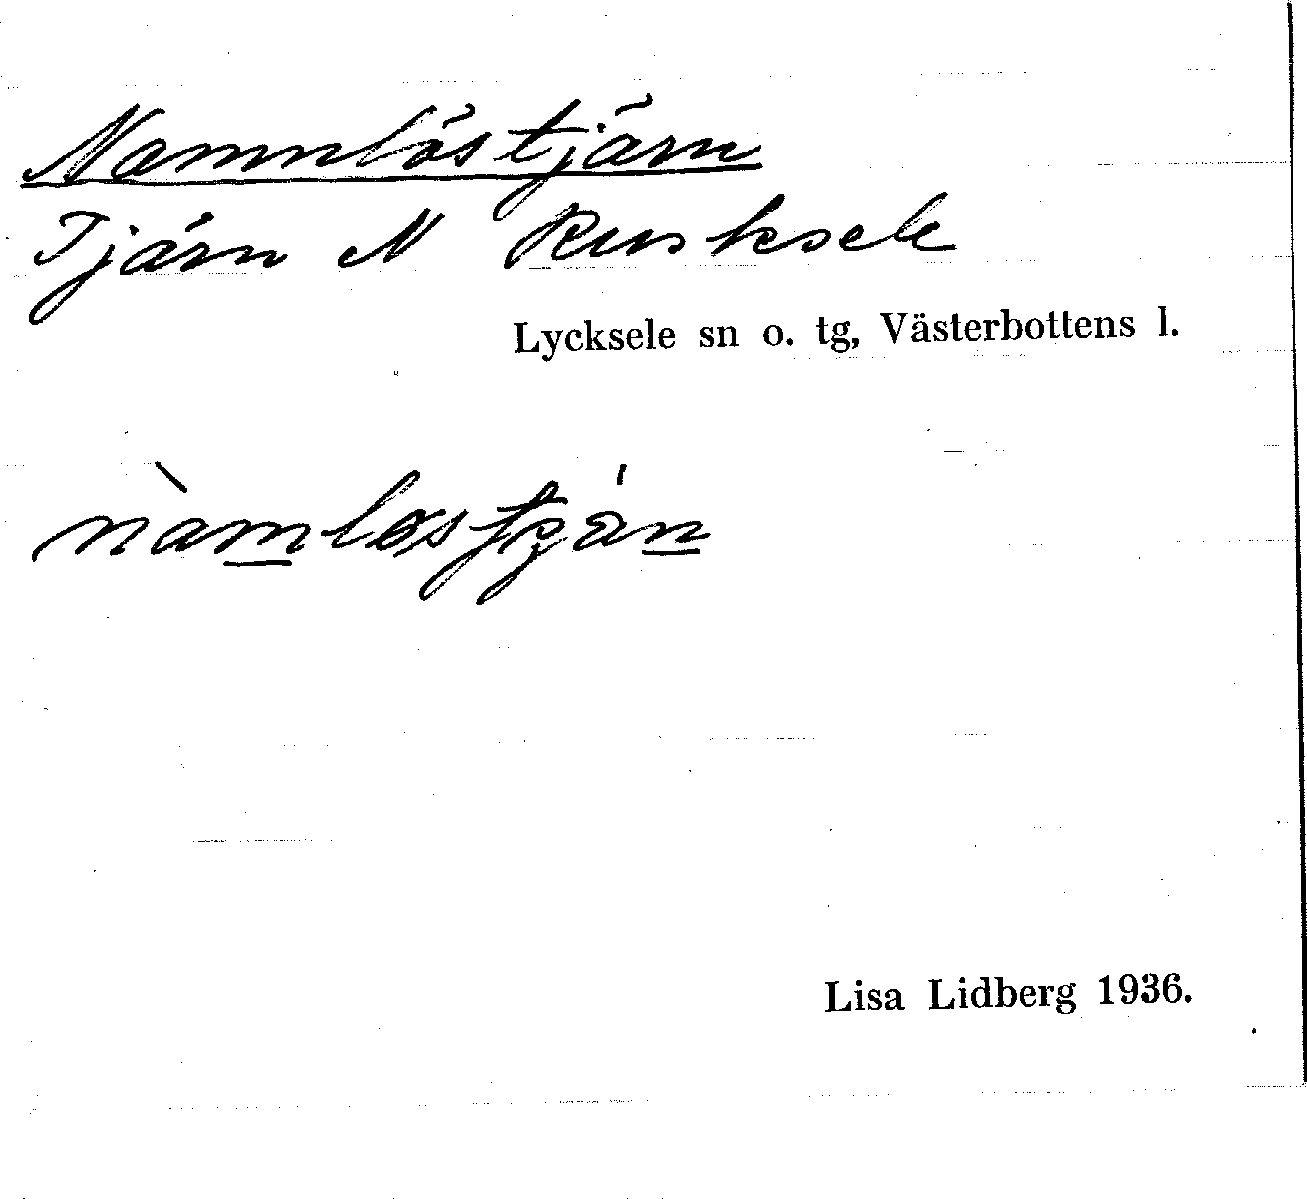 Namnlöstjärn
Tjärn N Rusksele
Lycksele sn o. tg, Västerbottens l.
Lisa Lidberg 1936.